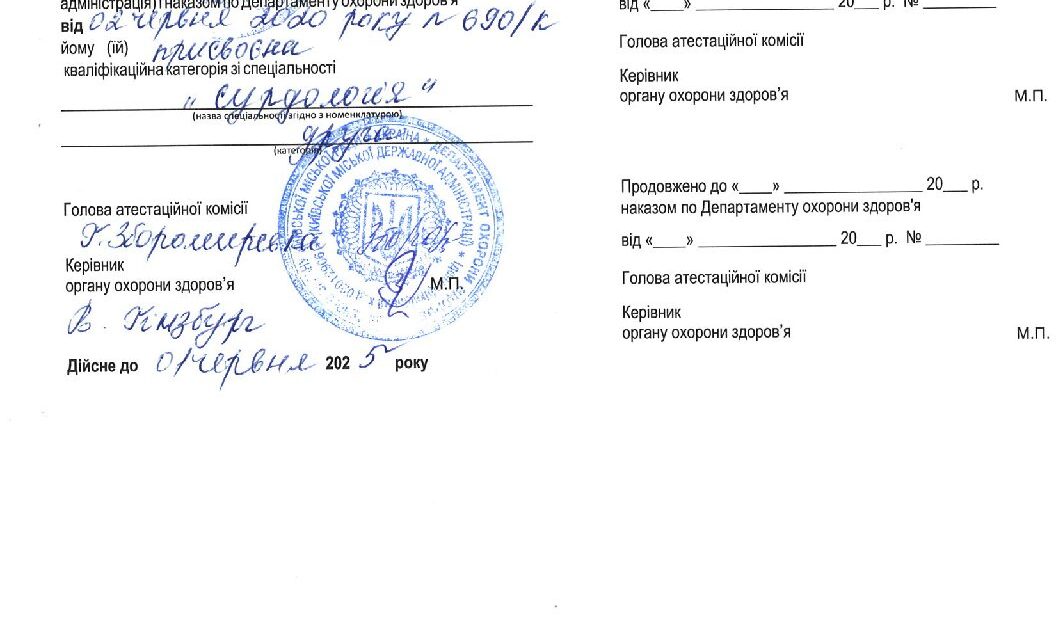 адміністрації) наказом по Департаменту охорони здоров'я
від 02 червня 2020 року № 690/к
йому (їй) присвоєна
кваліфікаційна категорія зі спеціальності
"сурдологія"
(назва спеціальності згідно з номенклатурою)
друга
(категорія)
Голова атестаційної комісії
Керівник
органу охорони здоров'я
М.П.
В.
Дійсне до 01 червня 2025 року
від «____» ____________ 20___ р. № __________
Голова атестаційної комісії
Керівник
органу охорони здоров'я М.П.
Продовжено до «____» ____________ 20___ р.
наказом по Департаменту охорони здоров'я
від «____» ____________ 20___ р. № __________
Голова атестаційної комісії
Керівник
органу охорони здоров'я М.П.
УКРАЇНА * ДЕПАРТАМЕНТ ОХОРОНИ
КИЇВСЬКОЇ МІСЬКОЇ ДЕРЖАВНОЇ АДМІНІСТРАЦІЇ)